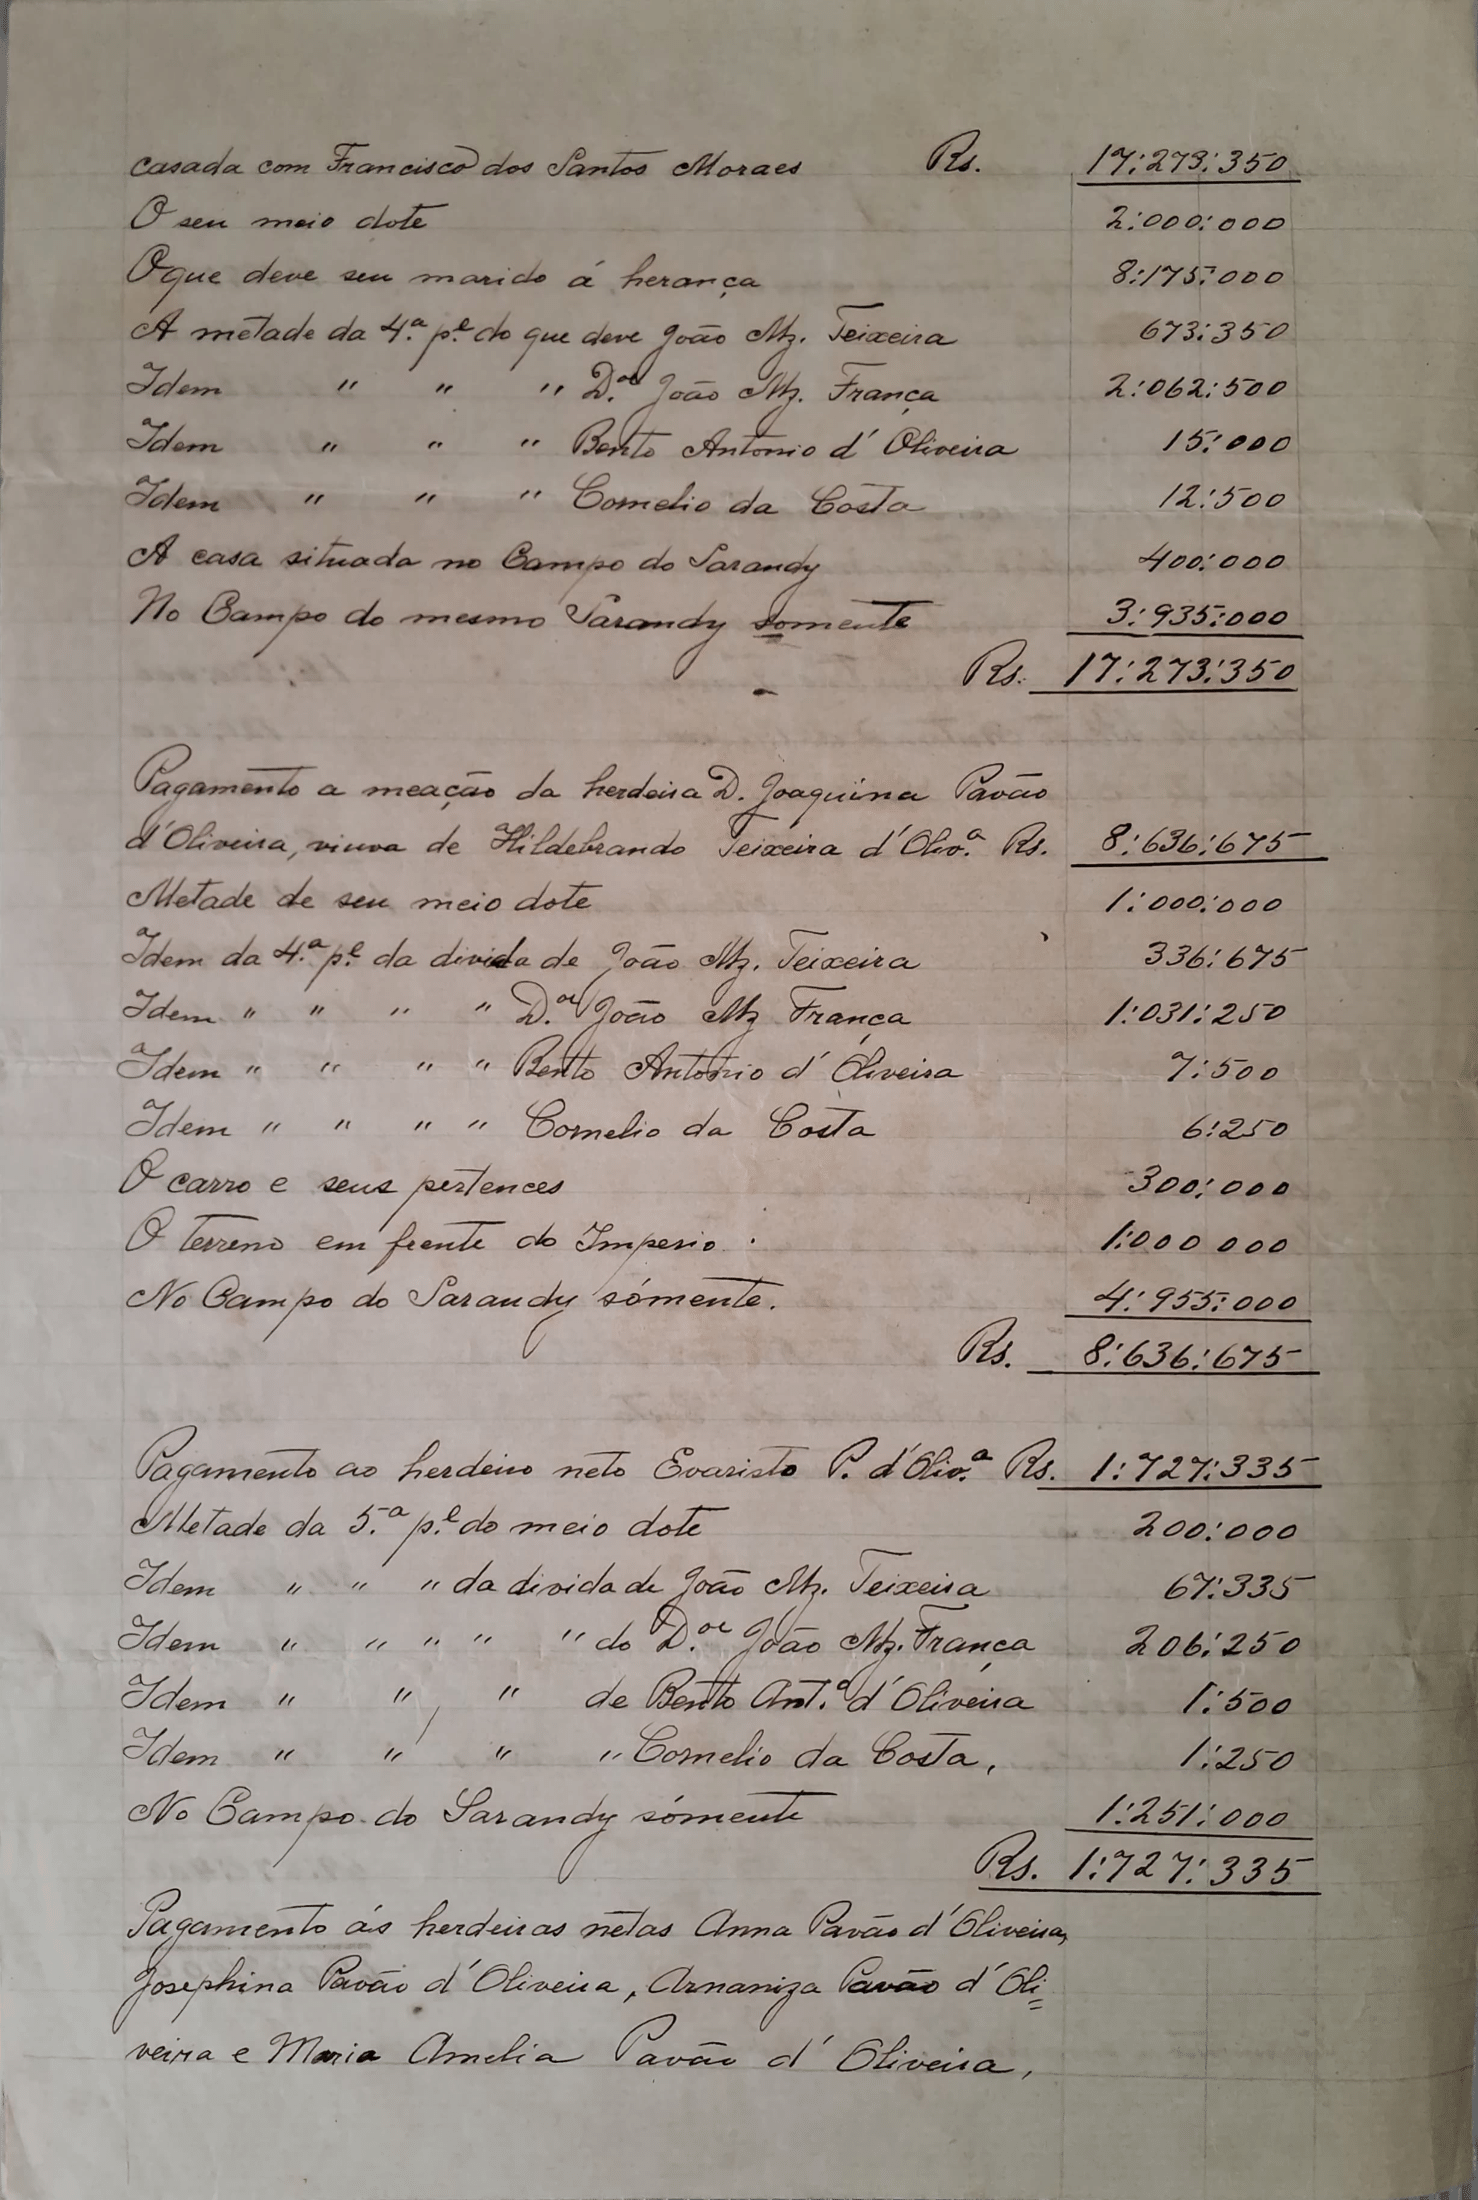 casada com Francisco dos Santos Moraes Rs. 17:273:350
O seu meio dote 2:000:000
O que deve seu marido á herança 8:175:000
A metade da 4.ª p.e do que deve João Mz. Teixeira 673:350
Idem " " " D.or João Mz. França 2:062:500
Idem " " " Bento Antonio d'Oliveira 15:000
Idem " " " Cornelio da Costa 12:500
A casa situada no Campo do Sarandy 400:000
No Campo do mesmo Sarandy somente 3:935:000
Rs. 17:273:350
Pagamento a meação da herdeira D. Joaquina Pavão
d'Oliveira, viuva de Hildebrando Teixeira d'Oliv.ª Rs. 8:636:675
Metade de seu meio dote 1:000:000
Idem da 4.ª p.e da divida de João Mz. Teixeira 336:675
Idem " " " " D.or João Mz França 1:031:250
Idem " " " " Bento Antonio d'Oliveira 7:500
Idem " " " " Cornelio da Costa 6:250
O carro e seus pertences 300:000
O terreno em frente do Imperio. 1:000 000
No Campo do Sarandy sómente. 4:955:000
Rs. 8:636:675
Pagamento ao herdeiro neto Evaristo P. d'Oliv.ª Rs. 1:727:335
Metade da 5.ª p.e do meio dote 200:000
Idem " " " da divida de João Mz. Teixeira 67:335
Idem " " " " " do D.or João Mz. França 206:250
Idem " " " de Bento Ant.o d'Oliveira 1:500
Idem " " " " Cornelio da Costa, 1:250
No Campo do Sarandy sómente 1:251:000
Rs. 1:727:335
Pagamento ás herdeiras netas Anna Pavão d'Oliveira,
Josephina Pavão d'Oliveira, Arnaniza Pavão d'Oli=
veira e Maria Amelia Pavão d'Oliveira,